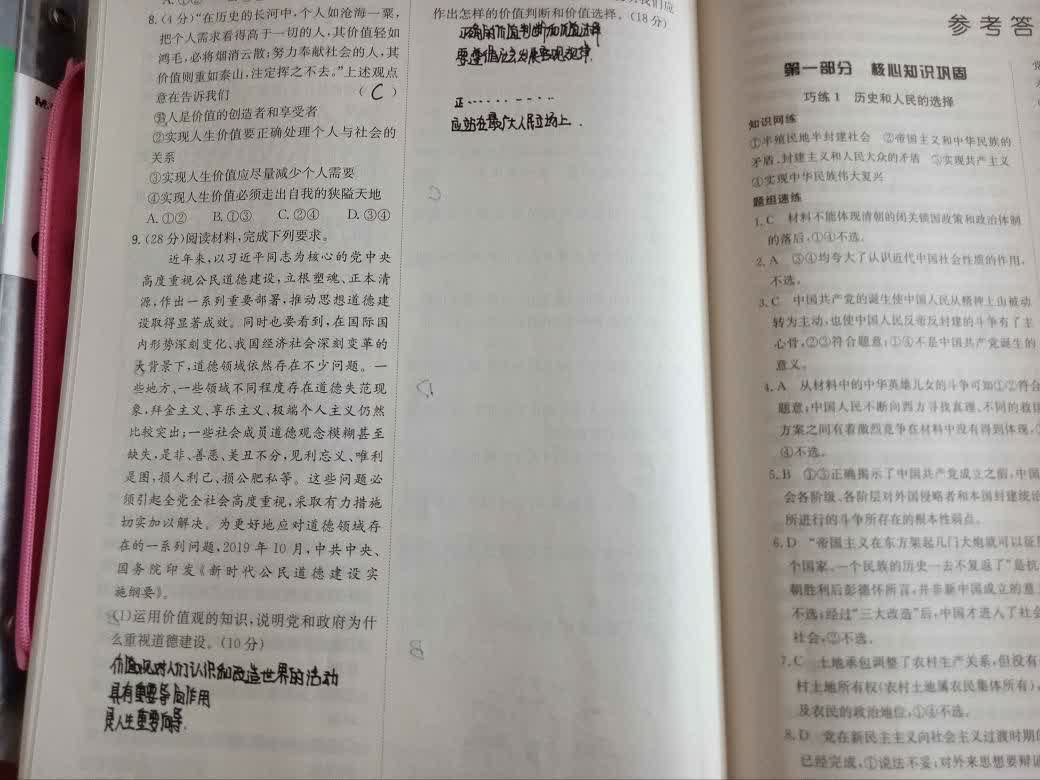 8.(4分)“在历史的长河中,个人如沧海一粟,
把个人需求看得高于一切的人,其价值轻如
鸿毛,必将烟消云散;努力奉献社会的人,其
价值则重如泰山,注定挥之不去。”上述观点
意在告诉我们 ( C )
①人是价值的创造者和享受者
②实现人生价值要正确处理个人与社会的
关系
③实现人生价值应尽量减少个人需要
④实现人生价值必须走出自我的狭隘天地
A.①② B.①③ C.②④ D.③④
9.(28分)阅读材料,完成下列要求。
近年来,以习近平同志为核心的党中央
高度重视公民道德建设,立根塑魂、正本清
源,作出一系列重要部署,推动思想道德建
设取得显著成效。同时也要看到,在国际国
内形势深刻变化、我国经济社会深刻变革的
大背景下,道德领域依然存在不少问题。一
些地方、一些领域不同程度存在道德失范现
象,拜金主义、享乐主义、极端个人主义仍然
比较突出;一些社会成员道德观念模糊甚至
缺失,是非、善恶、美丑不分,见利忘义、唯利
是图,损人利己、损公肥私等。这些问题必
须引起全党全社会高度重视,采取有力措施
切实加以解决。为更好地应对道德领域存
在的一系列问题,2019年10月,中共中央、
国务院印发《新时代公民道德建设实
施纲要》。
(1)运用价值观的知识,说明党和政府为什
么重视道德建设。(10分)
价值观对人们认识和改造世界的活动
具有重要导向作用
是人生重要向导.
作出怎样的价值判断和价值选择。(18分)
正确的价值判断和价值选择
要遵循社会发展客观规律.
正..........
应站在最广大人民立场上.
参考答
第一部分 核心知识巩固
巧练1 历史和人民的选择
知识网络
①半殖民地半封建社会 ②帝国主义和中华民族的
矛盾、封建主义和人民大众的矛盾 ③实现共产主义
④实现中华民族伟大复兴
题组速练
1.C 材料不能体现清朝的闭关锁国政策和政治体制
的落后,①④不选。
2.A ③④均夸大了认识近代中国社会性质的作用,
不选。
3.C 中国共产党的诞生使中国人民从精神上由被动
转为主动,也使中国人民反帝反封建的斗争有了主
心骨,②③符合题意;①④不是中国共产党诞生的
意义。
4.A 从材料中的中华英雄儿女的斗争可知①②符合
题意;中国人民不断向西方寻找真理、不同的救国
方案之间有着激烈竞争在材料中没有得到体现,
④不选。
5.B ①③正确揭示了中国共产党成立之前,中国
会各阶级、各阶层对外国侵略者和本国封建统治
所进行的斗争所存在的根本性弱点。
6.D “帝国主义在东方架起几门大炮就可以征
个国家、一个民族的历史一去不复返了”是抗
朝胜利后彭德怀所言,并非新中国成立的意
不选;经过“三大改造”后,中国才进入了社会
社会,②不选。
7.C 土地承包调整了农村生产关系,但没有
村土地所有权(农村土地属农民集体所有),
及农民的政治地位,①④不选。
8.D 党在新民主主义向社会主义过渡时期
已经完成,①说法不妥;对外来思想要辩